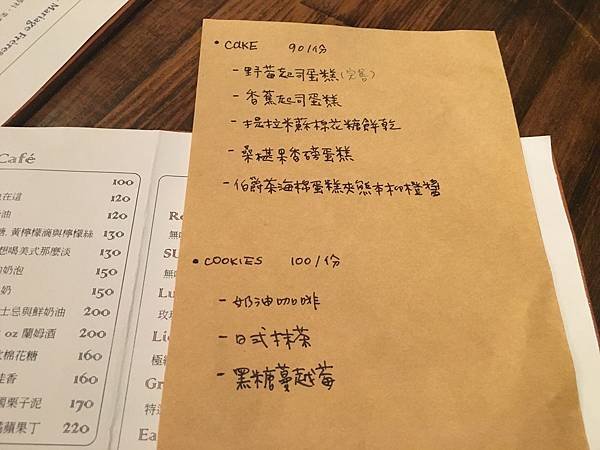 Mariage Frères
• CAKE 90/份
- 野莓起司蛋糕(完售)
- 香蕉起司蛋糕
- 提拉米蘇棉花糖餅乾
- 桑椹果香磅蛋糕
- 伯爵茶海棉蛋糕夾熊本柳橙醬
• COOKIES 100/份
- 奶油咖啡
- 日式抹茶
- 黑糖蔓越莓
Café
100
在這 120
油 120
黃檸檬滴與檸檬絲 130
想喝美式那麼淡 130
奶泡 150
奶 150
士忌與鮮奶油 200
oz 蘭姆酒 200
棉花糖 160
香 160
栗子泥 170
蘋果丁 220
Re
無
SU
無
Lu
玫
Li
極
Gr
特
Ea